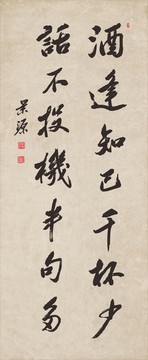 酒逢知己千杯少
話不投機半句多
景源